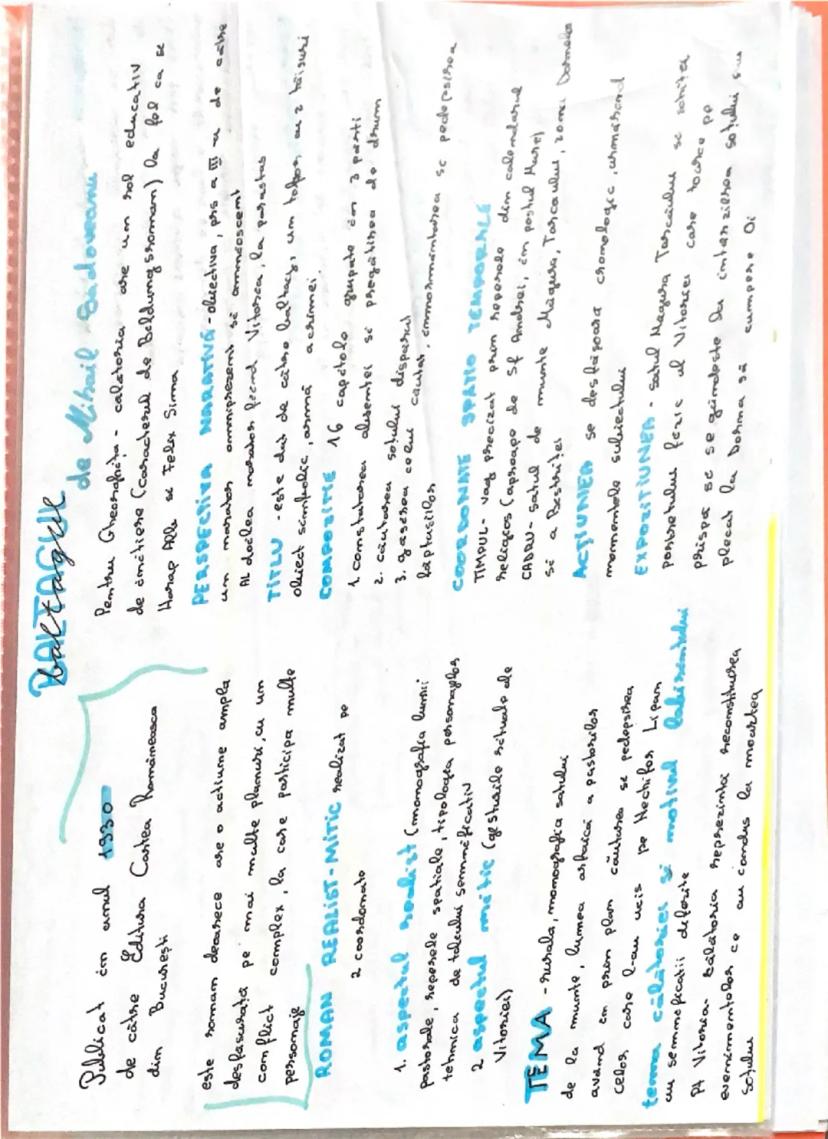 BALTAGUL
Baltagul
de Mihail Sadoveanu
Publicat în anul 1930
de către Editura Cartea Românească
din București
este roman deoarece are o acțiune amplă
desfasurată pe mai multe planuri, cu un
conflict complex, la care participa multe
personaje
ROMAN REALIST-MITIC realizat pe
2 coordonate
1. aspectul realist (monografia lumii
pastorale, reperele spatiale, tipologia personajelor
tehnica detaliului semnificativ
2 aspectul mitic (gesturile rituale ale
Vitoriei)
TEMA - rurala, monografia satului
de la munte, lumea arhaică a pastorilor
având în prim plan căutarea și pedepsirea
celor care l-au ucis pe Nechifor Lipan
tema călătoriei și motivul labirintului
au semnificatii diferite
Pt Vitoria- Călătoria reprezinta reconstituirea
evenimentelor ce au condus la moartea
soțului
Pentru Gheorghiță - calatoria are un rol educativ
de inițiere (caracterul de Bildungsroman) la fel ca și
Harap Alb si Felix Sima
PERSPECTIVA NARATIVĂ - obiectiva, prs a III a de către
un narator omniprezent și omniscient
AL doilea narator fiind Vitoria, la parastas
TITLU - este dat de către baltag, un topor cu 2 tăișuri
obiect simbolic, armă a crimei
COMPOZITIE 16 capitole grupate în 3 parti
1. constatarea absentei si pregătirea de drum
2. căutarea soțului disparut
3. gasirea celui cautat, inmormântarea și pedepsirea
făptașilor
COORDONATE SPATIO TEMPORALE
TIMPUL- vag precizat prin reperele din calendarul
religios (aproape de Sf Andrei, în postul Mare)
CADRU- satul de munte Măgura, Tarcaului, zona Dornelor
si a Bistriței
ACȚIUNEA se desfășoară cronologic, urmărind
momentele subiectului
EXPOZIȚIUNEA - satul Magura Tarcăului si schița
portretului fizic al Vitoriei care toarce pe
prispă și se gândeste la intarzierea soțului său
plecat la Dorna să cumpere Oi